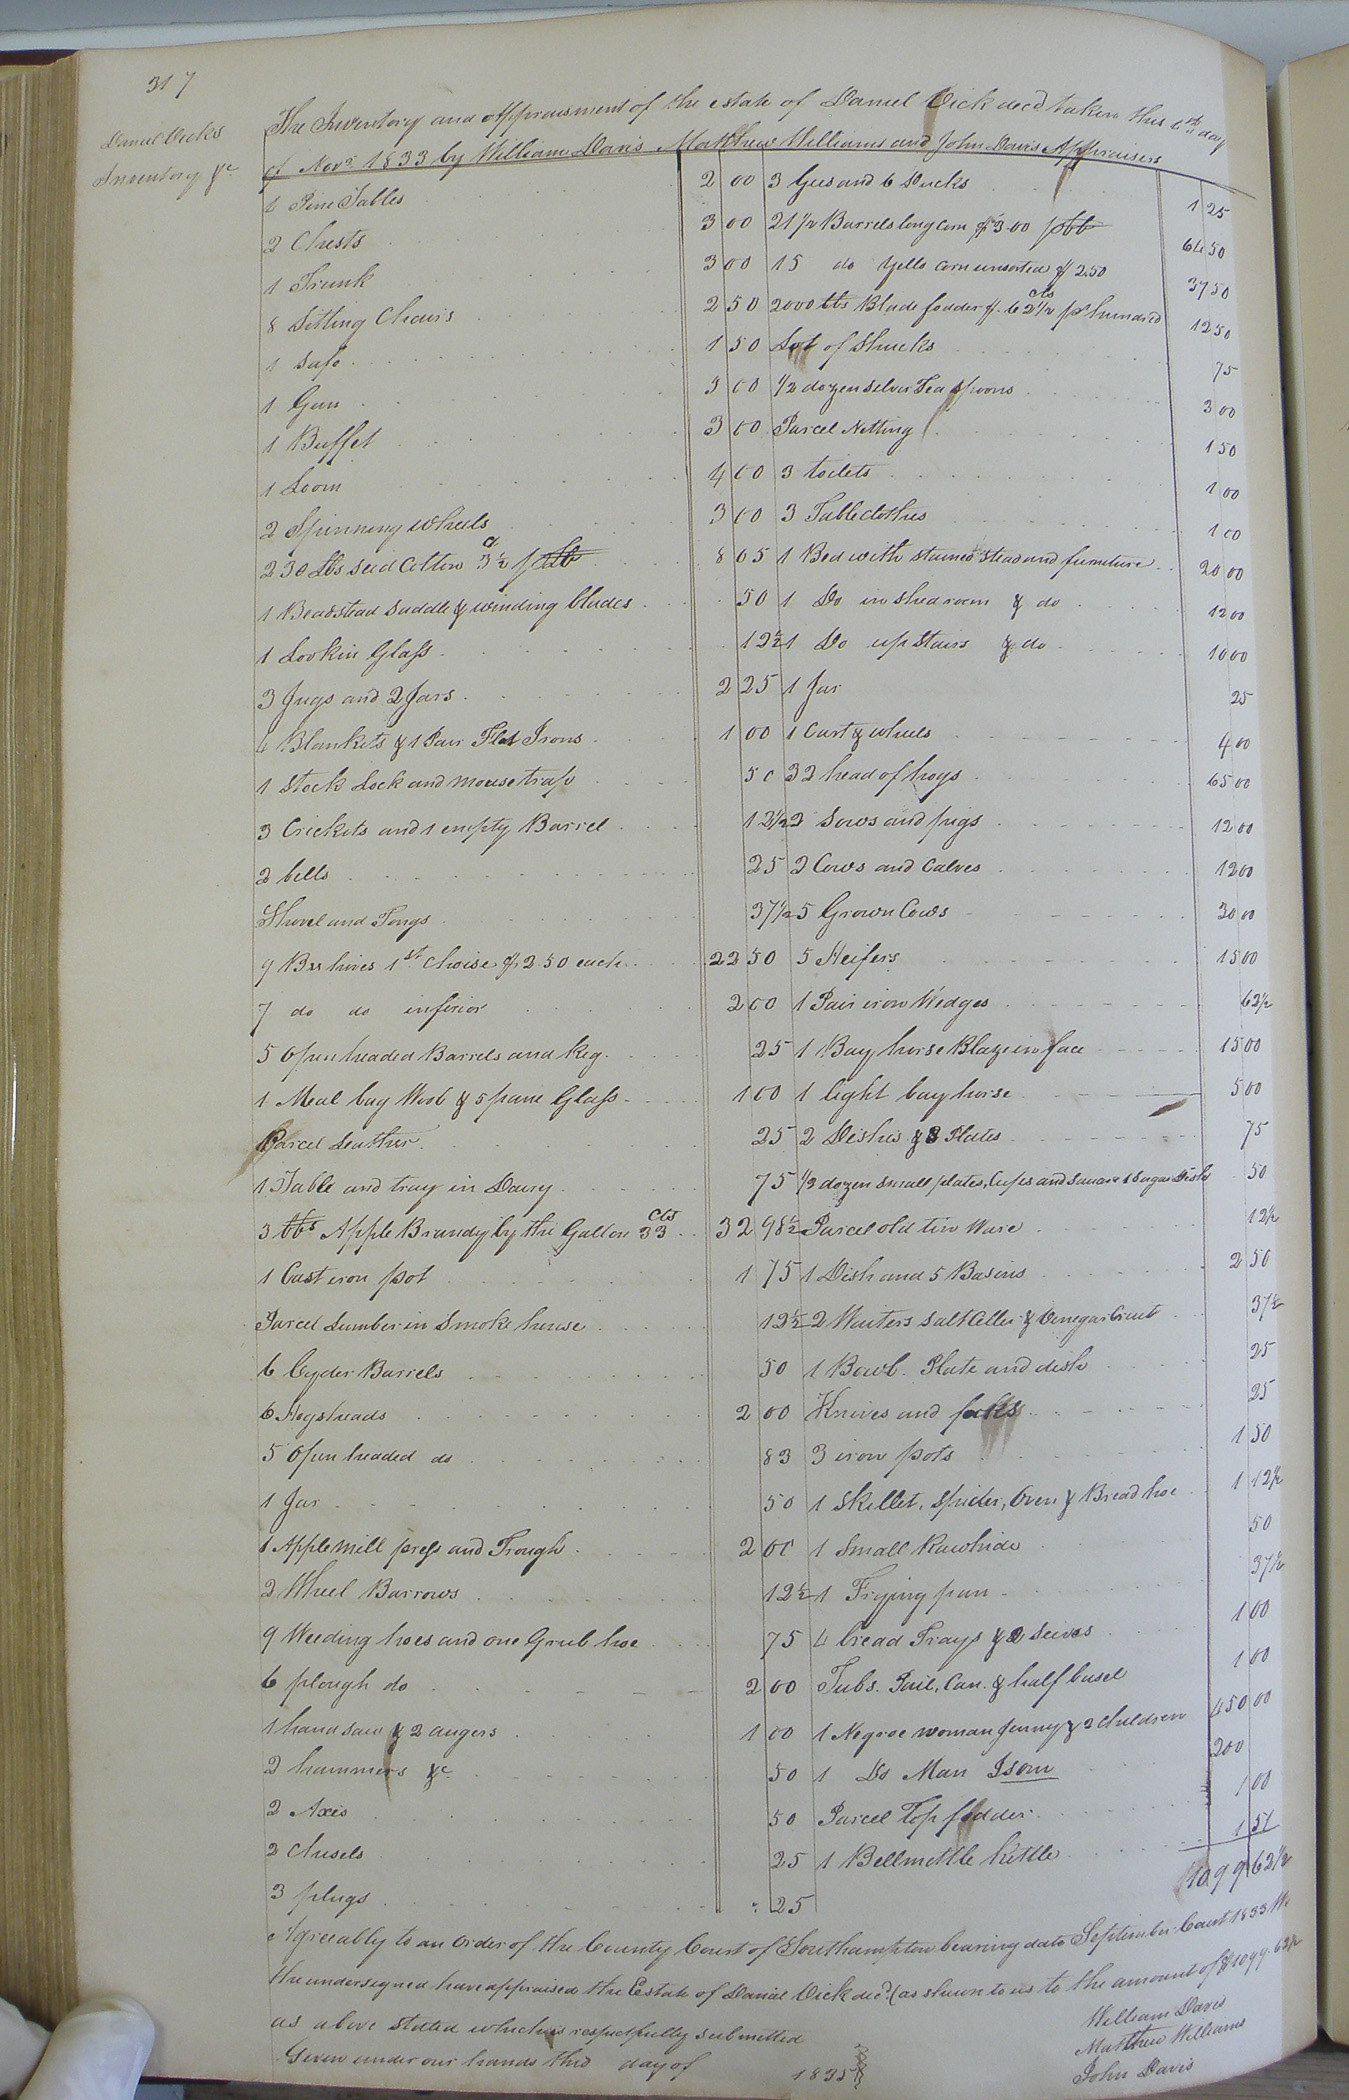 317
Daniel Vicks
Inventory &c
The Inventory and Appraisment of the estate of Daniel Vick decd taken this day
of Novr 1833 by William Davis Matthew Williams and John Davis Appraisers
Pine Tables 2 00
2 Chests 3 00
1 Trunk 3 00
8 Sitting Chairs 2 50
1 Safe 1 50
1 Gun 3 00
1 Buffet 3 00
1 Loom 4 00
2 Spinning wheels 3 00
230 lbs seed Cotton 3½ pr lb 8 05
1 Beadstead saddle & winding blades 50
1 Lookin Glass 12½
3 Jugs and 2 Jars 2 25
4 Blankets & 1 Pair Flat Irons 1 00
1 Stock Lock and mouse trap 50
3 Crickets and 1 empty Barrel 12½
2 bells 25
Shovel and Tongs 37½
9 Bee hives 1st Choise of 2.50 each 22 50
7 do do inferior 2 00
5 Open headed Barrels and Keg 25
1 Meal bag Wool & 5 pane Glass 1 00
Parcel Leather 25
1 Table and tray in Dairy 75
3 bbs Apple Brandy by the Gallon 33 cts 32 98½
1 Cast iron pot 1 75
Parcel Lumber in Smoke house 12½
6 Cyder Barrels 50
6 Hogsheads 2 00
5 Open headed do 83
1 Jar 50
1 Apple Mill press and Trough 2 00
2 Wheel Barrows 12½
9 Weeding hoes and one Grub hoe 75
6 plough do 2 00
1 hand saw & 2 augers 1 00
2 hammers &c 50
2 Axis 50
2 Chisels 25
3 plugs 25
3 Gees and 6 Ducks 1 25
21½ Barrels long corn of $3.00 pr bb 64 50
15 do yello corn unsorted of 2.50 37 50
2000 lbs Blade fodder of 62½ cts pr hundred 12 50
Lot of Shucks 75
½ dozen silver Tea spoons 3 00
Parcel Netting 1 50
3 toilets 1 00
3 Tableclothes 1 00
1 Bed with stained stead and furniture 20 00
1 Do in shed room & do 12 00
1 Do up Stairs & do 10 00
1 Jar 25
1 Cart & wheels 4 00
32 head of hogs 65 00
2 Sows and pigs 12 00
2 Cows and Calves 12 00
5 Grown Cows 30 00
5 Heifers 15 00
1 Pair iron Wedges 62½
1 Bay horse Blaze in face 15 00
1 light bay horse 5 00
2 Dishes & 8 Plates 75
½ dozen small plates, Cups and Saucers & Sugar Dish 50
Parcel old tin Ware 12½
1 Dish and 5 Basins 2 50
2 Waiters Salt Celler & Venegar Cruit 37½
1 Bowl. Plate and dish 25
Knives and foks 25
3 iron pots 1 50
1 Skillet, Spider, Oven & Bread hoe 1 12½
1 Small Rawhide 50
1 Frying pan 37½
4 bread Trays & 2 Seives 1 00
Tubs. Pail, Can. & half busel 1 00
1 Negroe woman Jenny & 2 Children 450 00
1 Do Man Isom 200
Parcel Top fodder 1 00
1 Bellmettle kittle 1 51
1099 62½
Agreeably to an order of the County Court of Southampton bearing date September Court 1833 We
the undersigned have appraised the Estate of Daniel Vick decd (as shewn to us to the amount of $1099.62½
as above stated which is respectfully submitted
Given under our hands this day of 1835
William Davis
Matthew Williams
John Davis